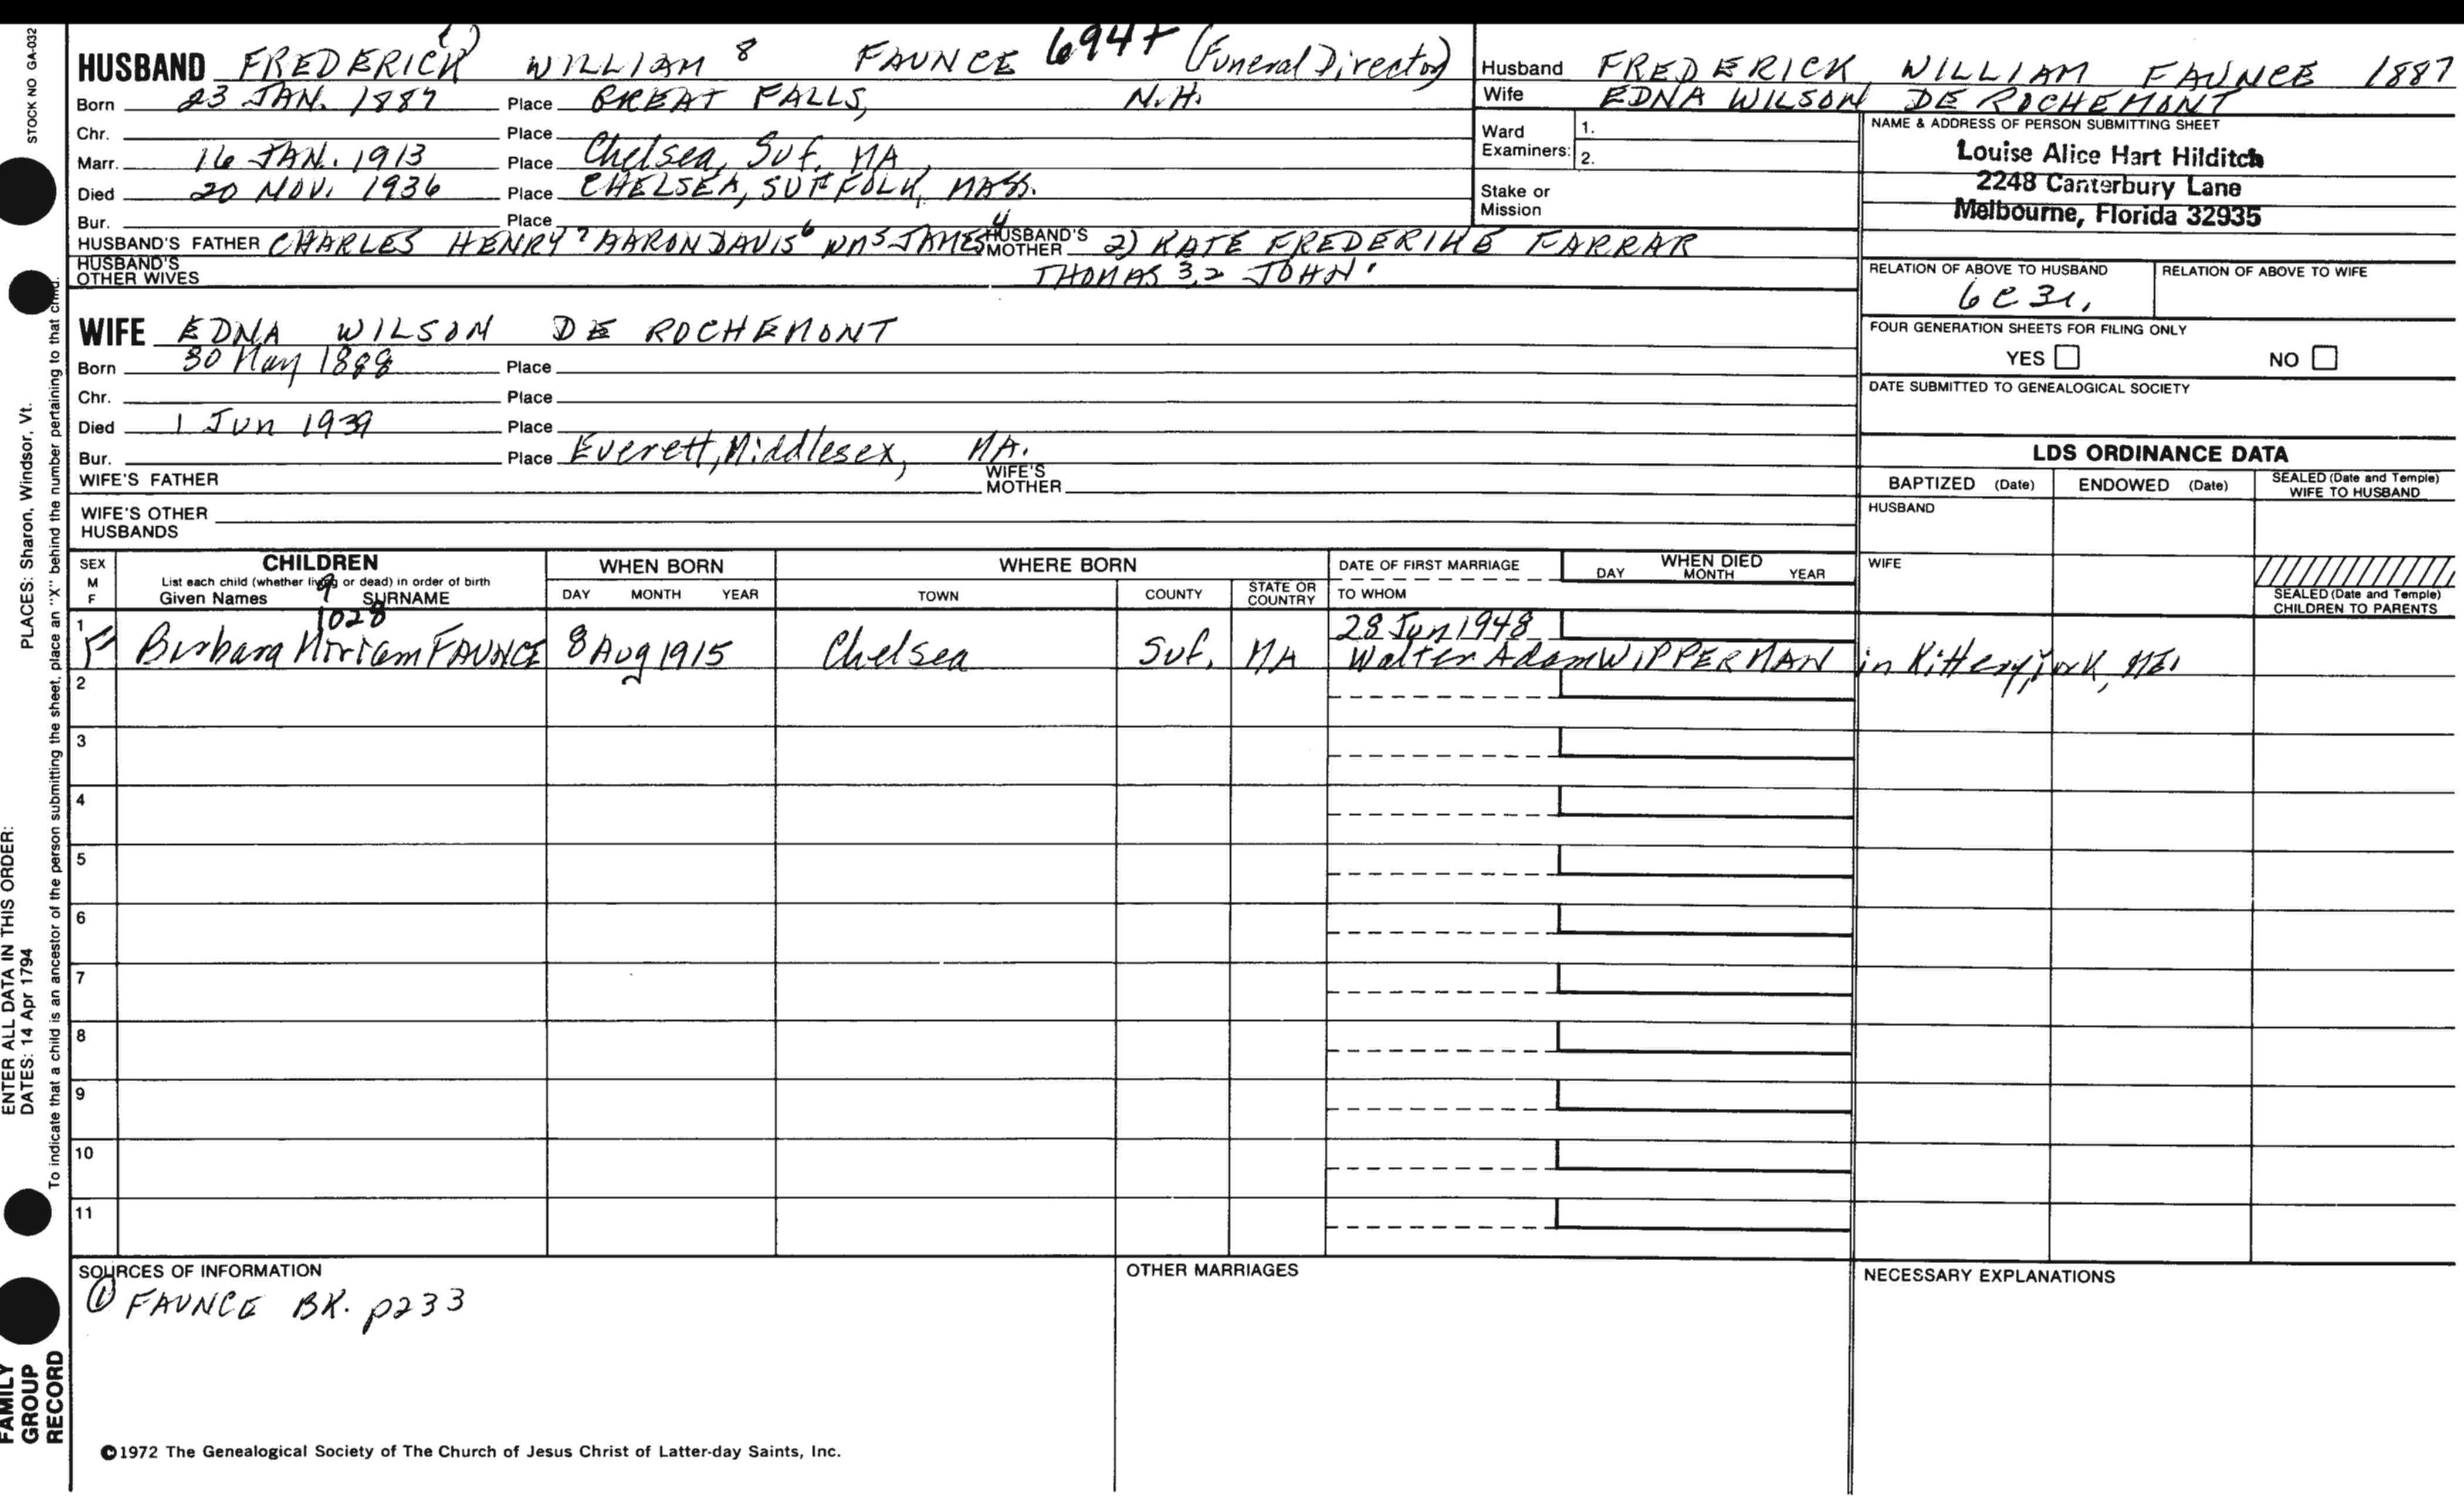 STOCK NO GA-032
PLACES: Sharon, Windsor, Vt.
ENTER ALL DATA IN THIS ORDER:
DATES: 14 Apr 1794
To indicate that a child is an ancestor of the person submitting the sheet, place an "X" behind the number pertaining to that child.
FAMILY GROUP RECORD
HUSBAND FREDERICK WILLIAM 8 FAUNCE 694+ (Funeral Director)
Born 23 JAN. 1887 Place GREAT FALLS, N.H.
Chr. Place
Marr. 16 JAN. 1913 Place Chelsea, Suf. MA
Died 20 NOV. 1936 Place CHELSEA, SUFFOLK, MASS.
Bur. Place
HUSBAND'S FATHER CHARLES HENRY 7 AARON DAVIS 6 WM 5 JAMES 4 HUSBAND'S MOTHER 2) KATE FREDERIKE FARRAR
HUSBAND'S OTHER WIVES THOMAS 3,2 JOHN 1
WIFE EDNA WILSON DE ROCHEMONT
Born 30 May 1888 Place
Chr. Place
Died 1 Jun 1939 Place
Bur. Place Everett, Middlesex, MA.
WIFE'S FATHER WIFE'S MOTHER
WIFE'S OTHER HUSBANDS
Husband FREDERICK WILLIAM FAUNCE 1887
Wife EDNA WILSON DE ROCHEMONT
Ward Examiners: 1.
2.
Stake or Mission
NAME & ADDRESS OF PERSON SUBMITTING SHEET
Louise Alice Hart Hilditch
2248 Canterbury Lane
Melbourne, Florida 32935
RELATION OF ABOVE TO HUSBAND RELATION OF ABOVE TO WIFE
6C3r,
FOUR GENERATION SHEETS FOR FILING ONLY
YES NO
DATE SUBMITTED TO GENEALOGICAL SOCIETY
LDS ORDINANCE DATA
BAPTIZED (Date) ENDOWED (Date) SEALED (Date and Temple) WIFE TO HUSBAND
HUSBAND
WIFE
SEALED (Date and Temple) CHILDREN TO PARENTS
SEX M F CHILDREN WHEN BORN WHERE BORN DATE OF FIRST MARRIAGE WHEN DIED
List each child (whether living or dead) in order of birth
Given Names SURNAME DAY MONTH YEAR TOWN COUNTY STATE OR COUNTRY TO WHOM DAY MONTH YEAR
9
1028
28 Jun 1948
1 F Barbara Miriam FAUNCE 8 Aug 1915 Chelsea Suf. MA Walter Adam WIPPERMAN in Kittery, York, ME.
2
3
4
5
6
7
8
9
10
11
SOURCES OF INFORMATION OTHER MARRIAGES NECESSARY EXPLANATIONS
① FAUNCE BK. p233
©1972 The Genealogical Society of The Church of Jesus Christ of Latter-day Saints, Inc.